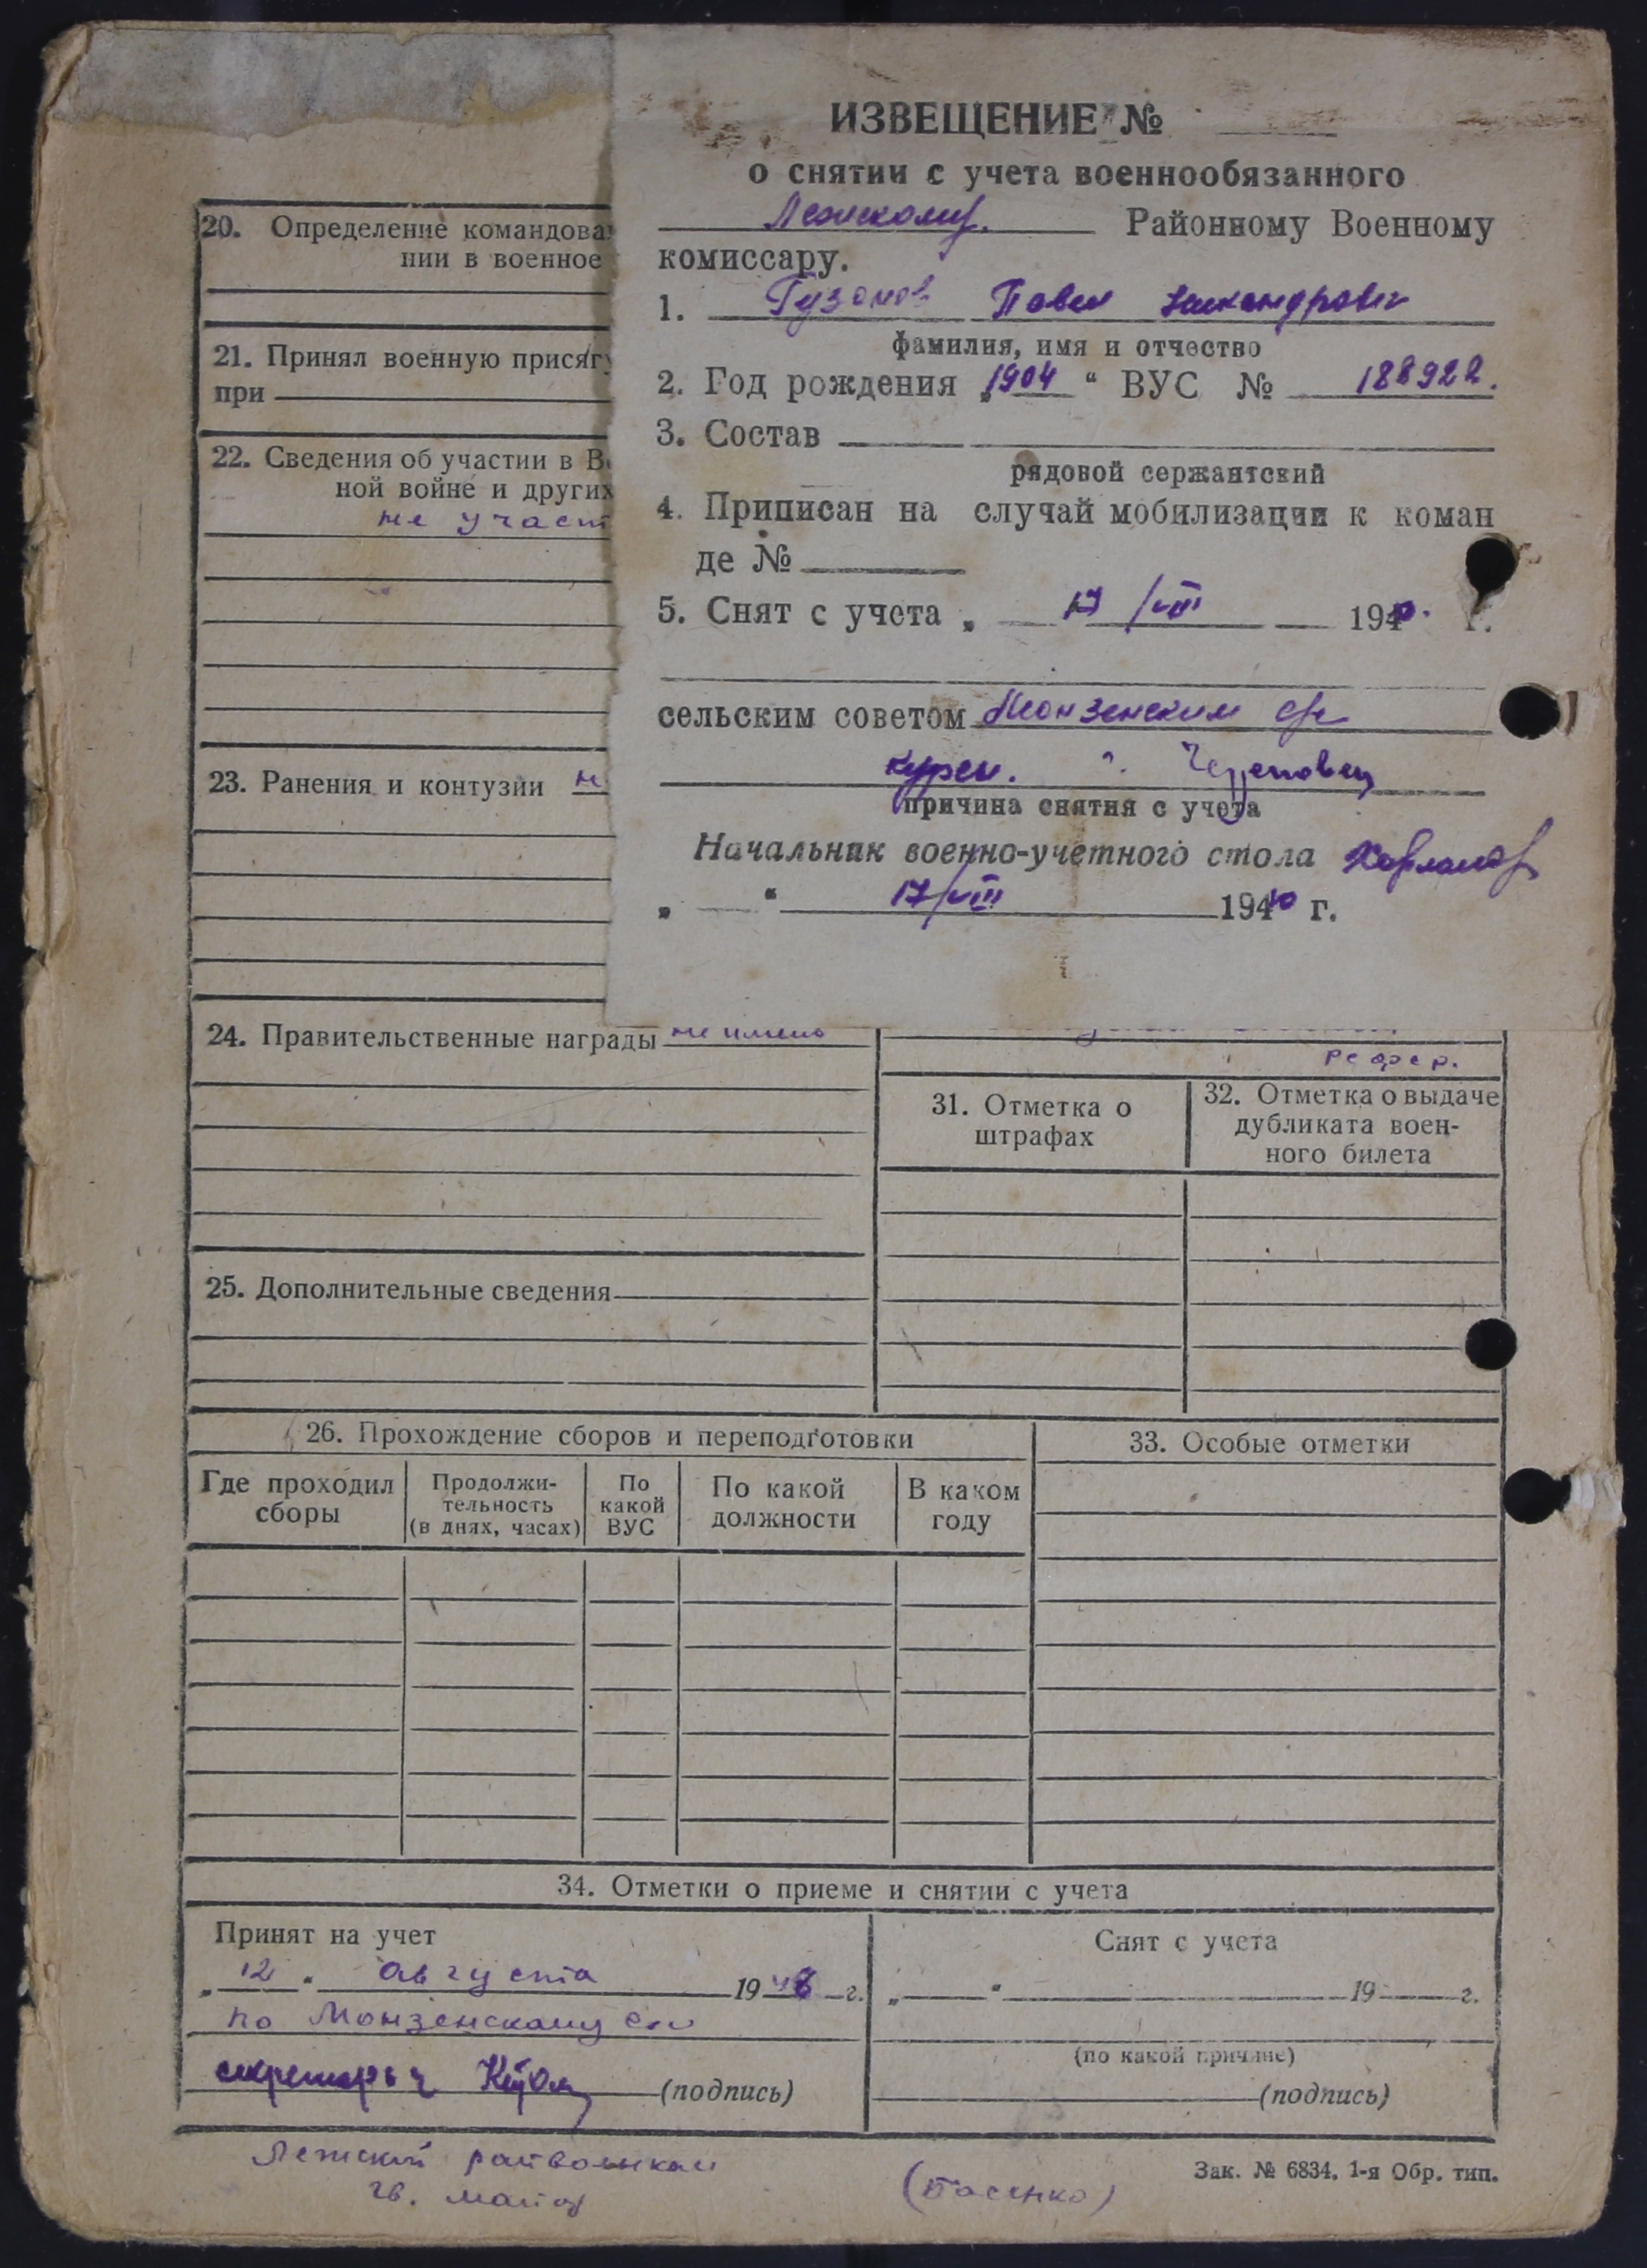 ИЗВЕЩЕНИЕ №
о снятии с учета военнообязанного
Лежскому Районному Военному
комиссару.
1. Гузонов Павел Никандрович
фамилия, имя и отчество
2. Год рождения „1904“ ВУС № 188922.
3. Состав
рядовой сержантский
4. Приписан на случай мобилизации к коман
де №
5. Снят с учета „ 17/VIII 1940. г.
сельским советом Монзенским с/с
г. Череповец
причина снятия с учета
Начальник военно-учетного стола
„ “ 17/VIII 194 г.
20. Определение командова
нии в военное
21. Принял военную присягу
при
22. Сведения об участии в Ве
ной войне и других
не участ
23. Ранения и контузии н
24. Правительственные награды не имею
РСФСР.
31. Отметка о
штрафах
32. Отметка о выдаче
дубликата воен-
ного билета
25. Дополнительные сведения
26. Прохождение сборов и переподготовки
33. Особые отметки
Где проходил
сборы
Продолжи-
тельность
(в днях, часах)
По
какой
ВУС
По какой
должности
В каком
году
34. Отметки о приеме и снятии с учета
Принят на учет
„ 12 “ августа 1948 г.
по Монзенскому с/с
секретарь (подпись)
Снят с учета
„ “ 19 г.
(по какой причине)
(подпись)
Лежский райвоенком
гв. майор (Басенко)
Зак. № 6834. 1-я Обр. тип.